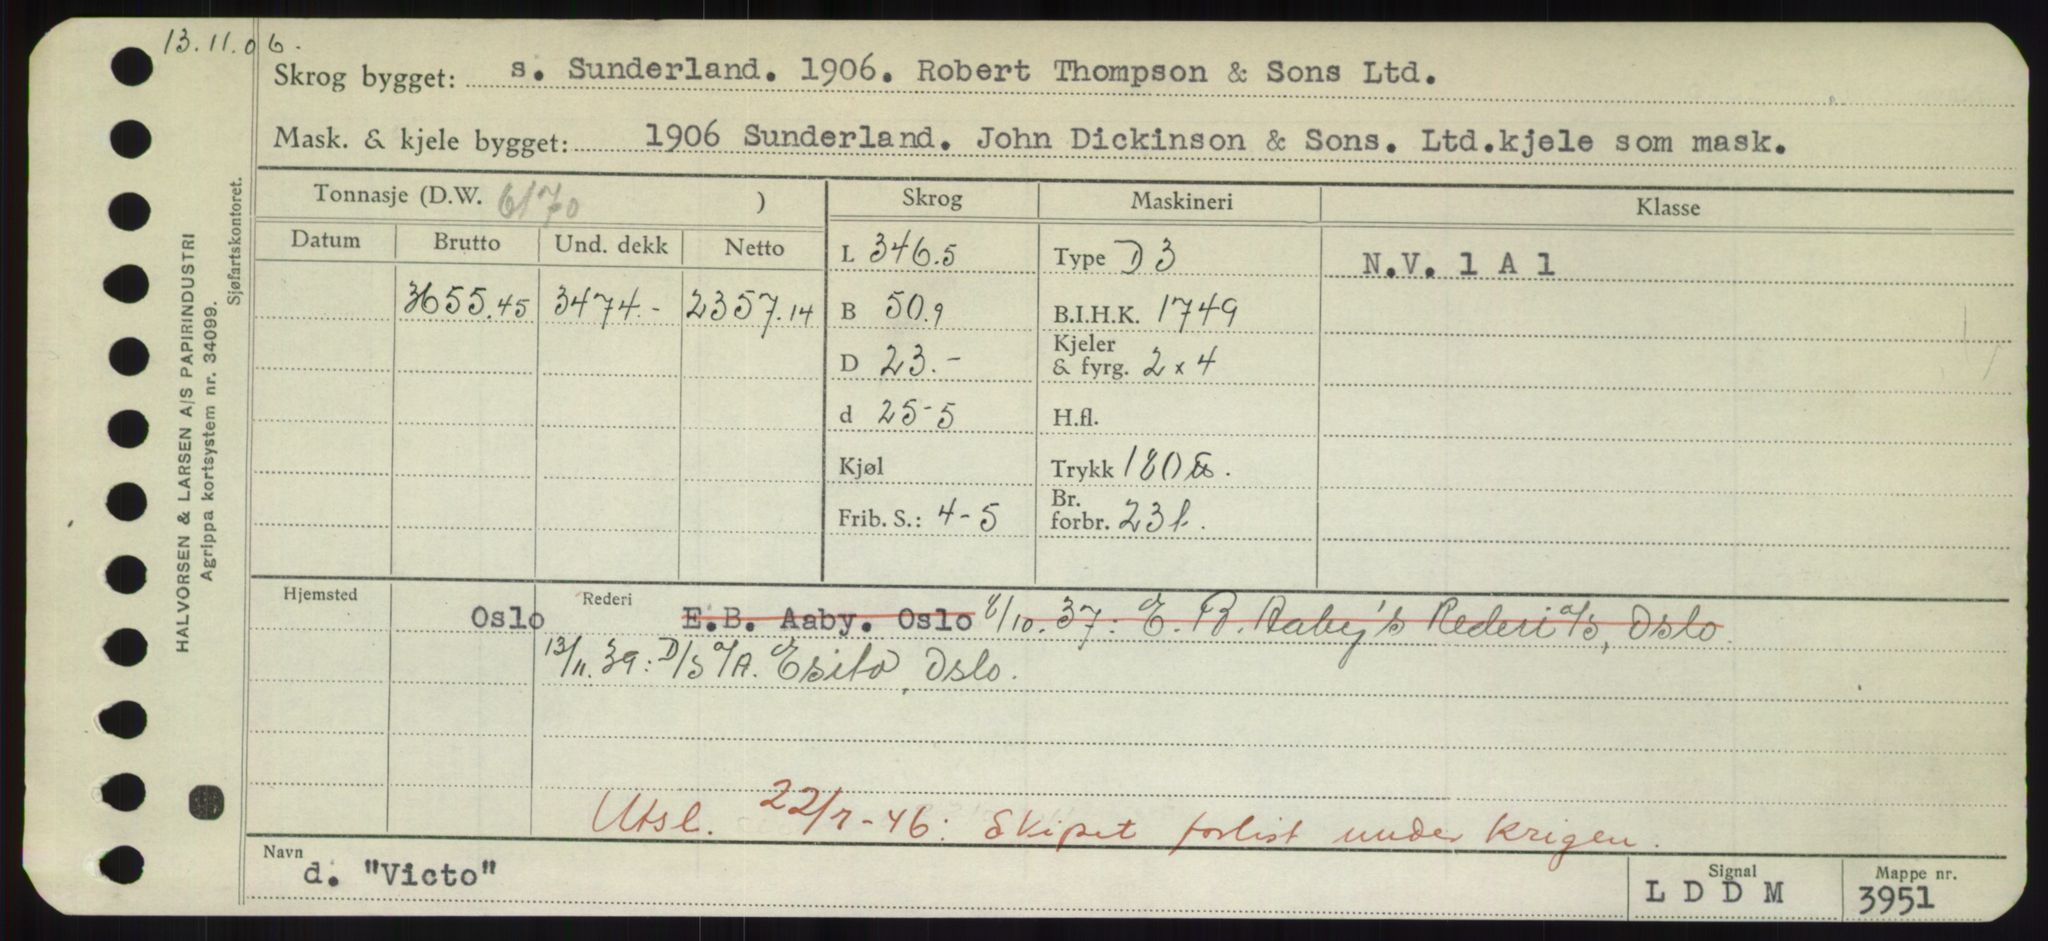 13.11.06.
Skrog bygget: s. Sunderland. 1906. Robert Thompson & Sons Ltd.
Mask. & kjele bygget: 1906 Sunderland. John Dickinson & Sons. Ltd.kjele som mask.
Tonnasje (D.W. 6170 ) Skrog Maskineri Klasse
Datum Brutto Und. dekk Netto L 346.5 Type D 3 N.V. 1 A 1
3655.45 3474.- 2357.14 B 50.9 B.I.H.K. 1749
D 23.- Kjeler & fyrg. 2 x 4
d 25-5 H.fl.
Kjøl Trykk 180
Frib. S.: 4-5 Br. forbr. 23 t.
Hjemsted Oslo Rederi E.B. Aaby. Oslo 8/10.37: E. B. Aaby's Rederi a/s, Oslo
13/11.39: D/S A/A. Esito, Oslo.
Utsl. 22/7-46: Skipet forlist under krigen.
Navn d. "Victo" Signal L D D M Mappe nr. 3951
HALVORSEN & LARSEN A/S PAPIRINDUSTRI
Agrippa kortsystem nr. 34099.
Sjøfartskontoret.